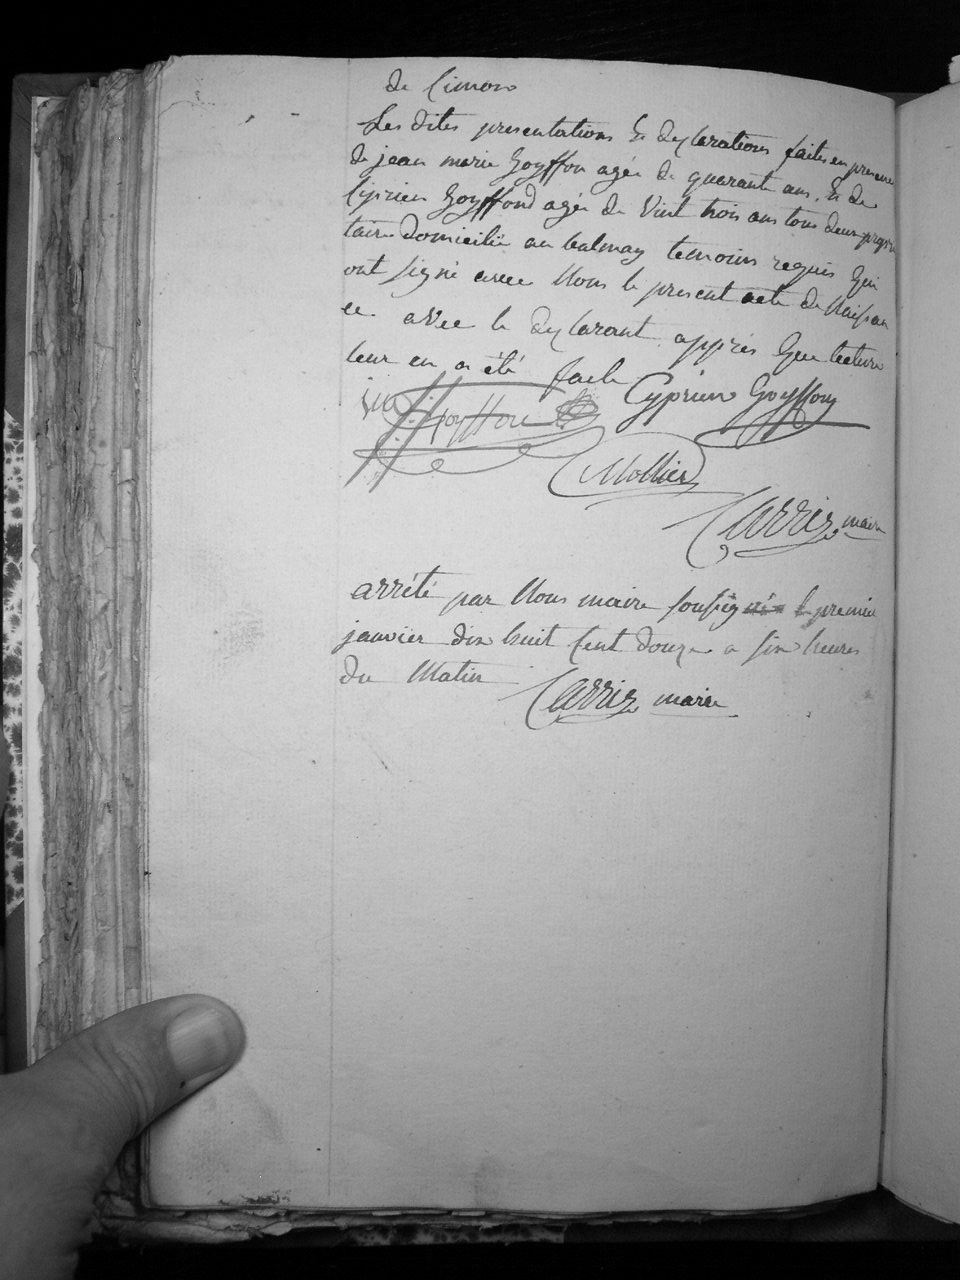 de Cimon
Les dites presentations & declarations faites en presence
de jean marie Goyffon agée de quarante ans, & de
Ciprien Goyffond agée de Vint trois ans tous deux propri
taire Domicilié au balmay temoins requis qui
ont signé avec Nous le present acte de Naissan
ce avec le declarant appres que lecture
leur en a été faite
Goyffon Cyprien Goyffon
Mollier
Carrier maire
arrêté par Nous maire soussigné le premier
janvier dix huit Cent douze a six heures
du Matin Carrier maire